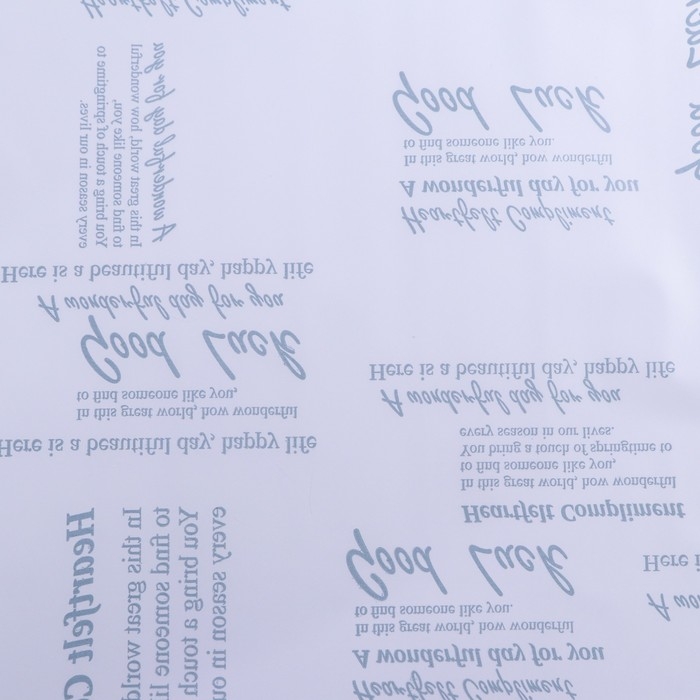 Heartfelt Compliment
In this great world, how wonderful
to find someone like you,
You bring a touch of springtime to
every season in our lives.
A wonderful day for you
Good Luck
to find someone like you.
In this great world, how wonderful
A wonderful day for you
Heartfelt Compliment
Good Luck
Here is a beautiful day, happy life
A wonderful day for you
Good Luck
to find someone like you,
In this great world, how wonderful
Here is a beautiful day, happy life
Here is a beautiful day, happy life
A wonderful day for you
every season in our lives.
You bring a touch of springtime to
to find someone like you,
In this great world, how wonderful
Heartfelt Compliment
Heartfelt
In this great world
to find someone
You bring a touch
every season in
Good Luck
to find someone like you.
In this great world, how wonderful
A wonderful day for you
Heartfelt Compliment
Here
A